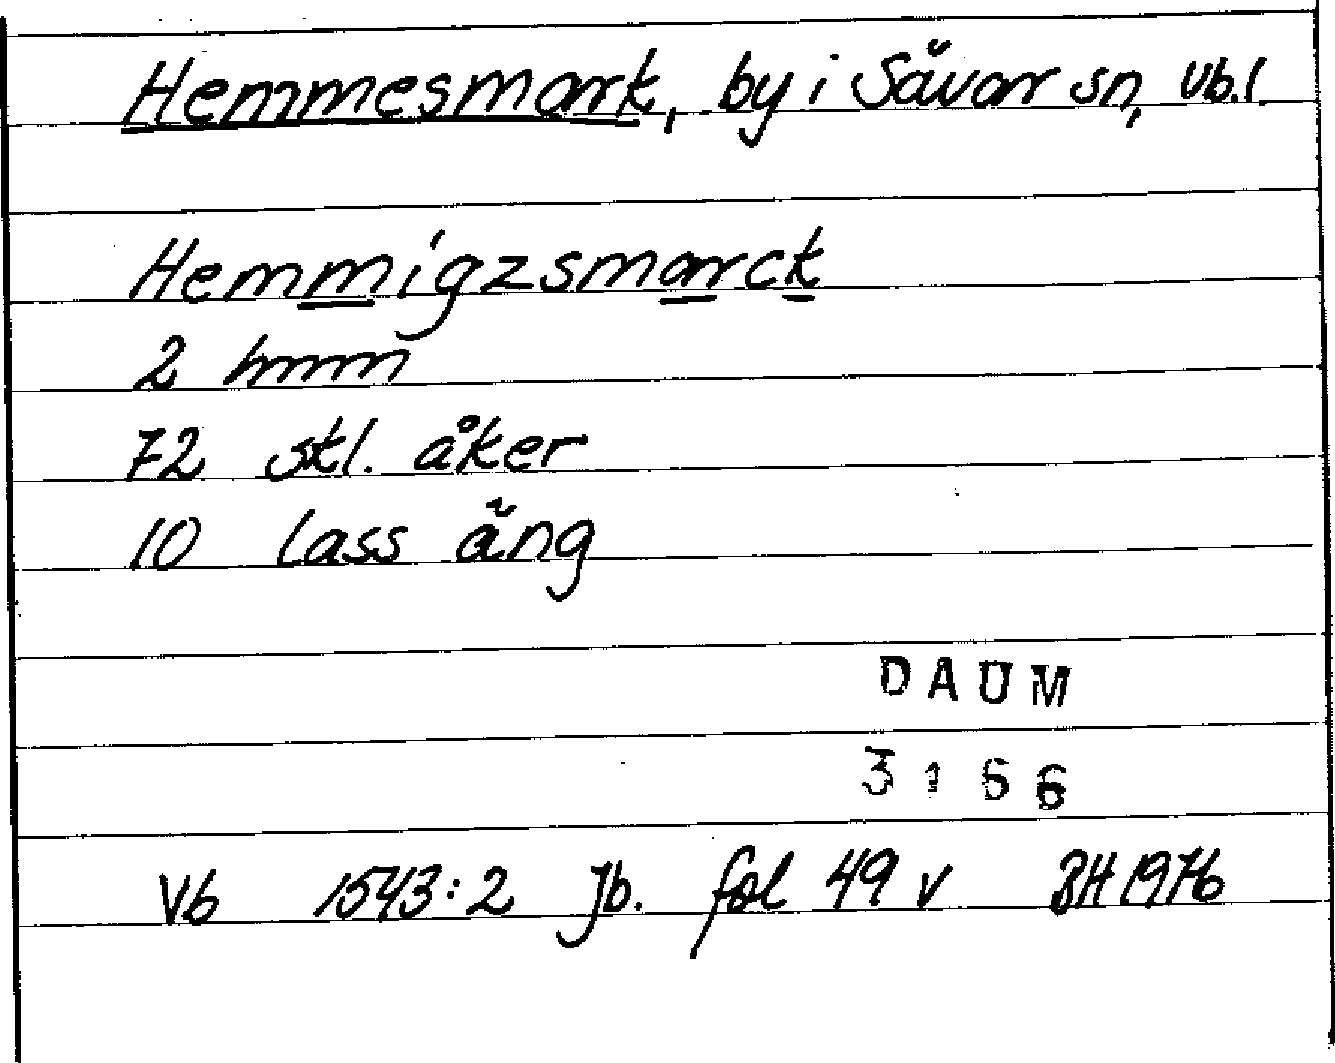 Hemmesmark, by i Sävar sn, Vb.l.
Hemmigzsmarck
2 hmm
72 skl. åker
10 lass äng
DAUM
3166
Vb 1543:2 Jb. fol 49 v BH 1976